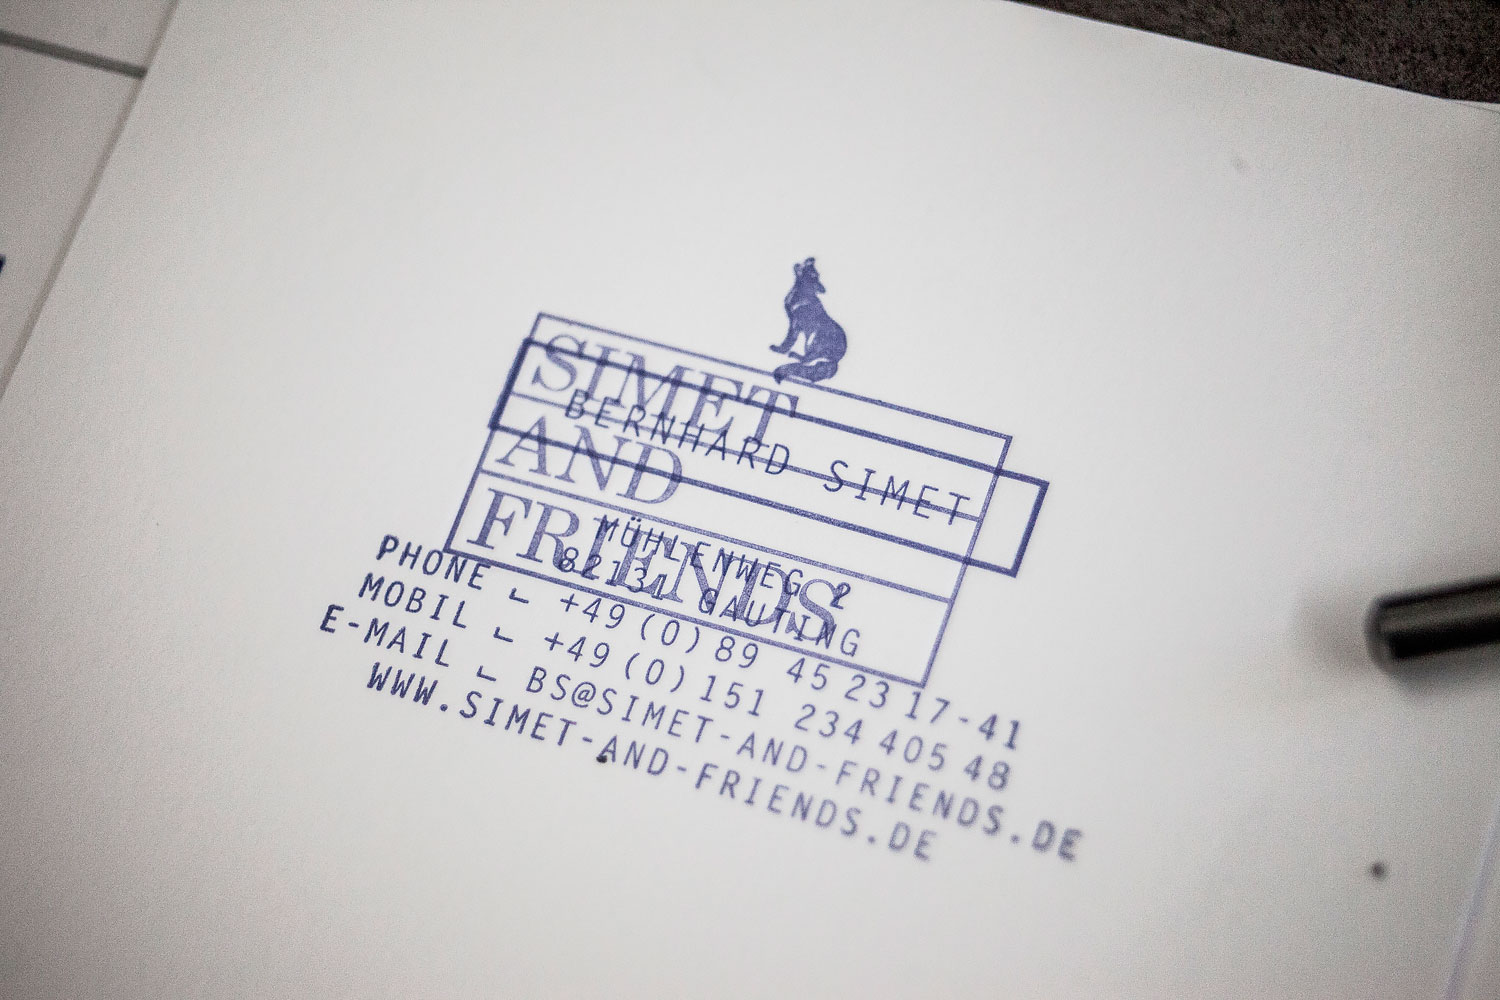 SIMET
AND
FRIENDS
BERNHARD SIMET
MÜHLENWEG 2
82131 GAUTING
PHONE ⌙ +49 (0) 89 45 23 17-41
MOBIL ⌙ +49 (0) 151 234 405 48
E-MAIL ⌙ BS@SIMET-AND-FRIENDS.DE
WWW.SIMET-AND-FRIENDS.DE